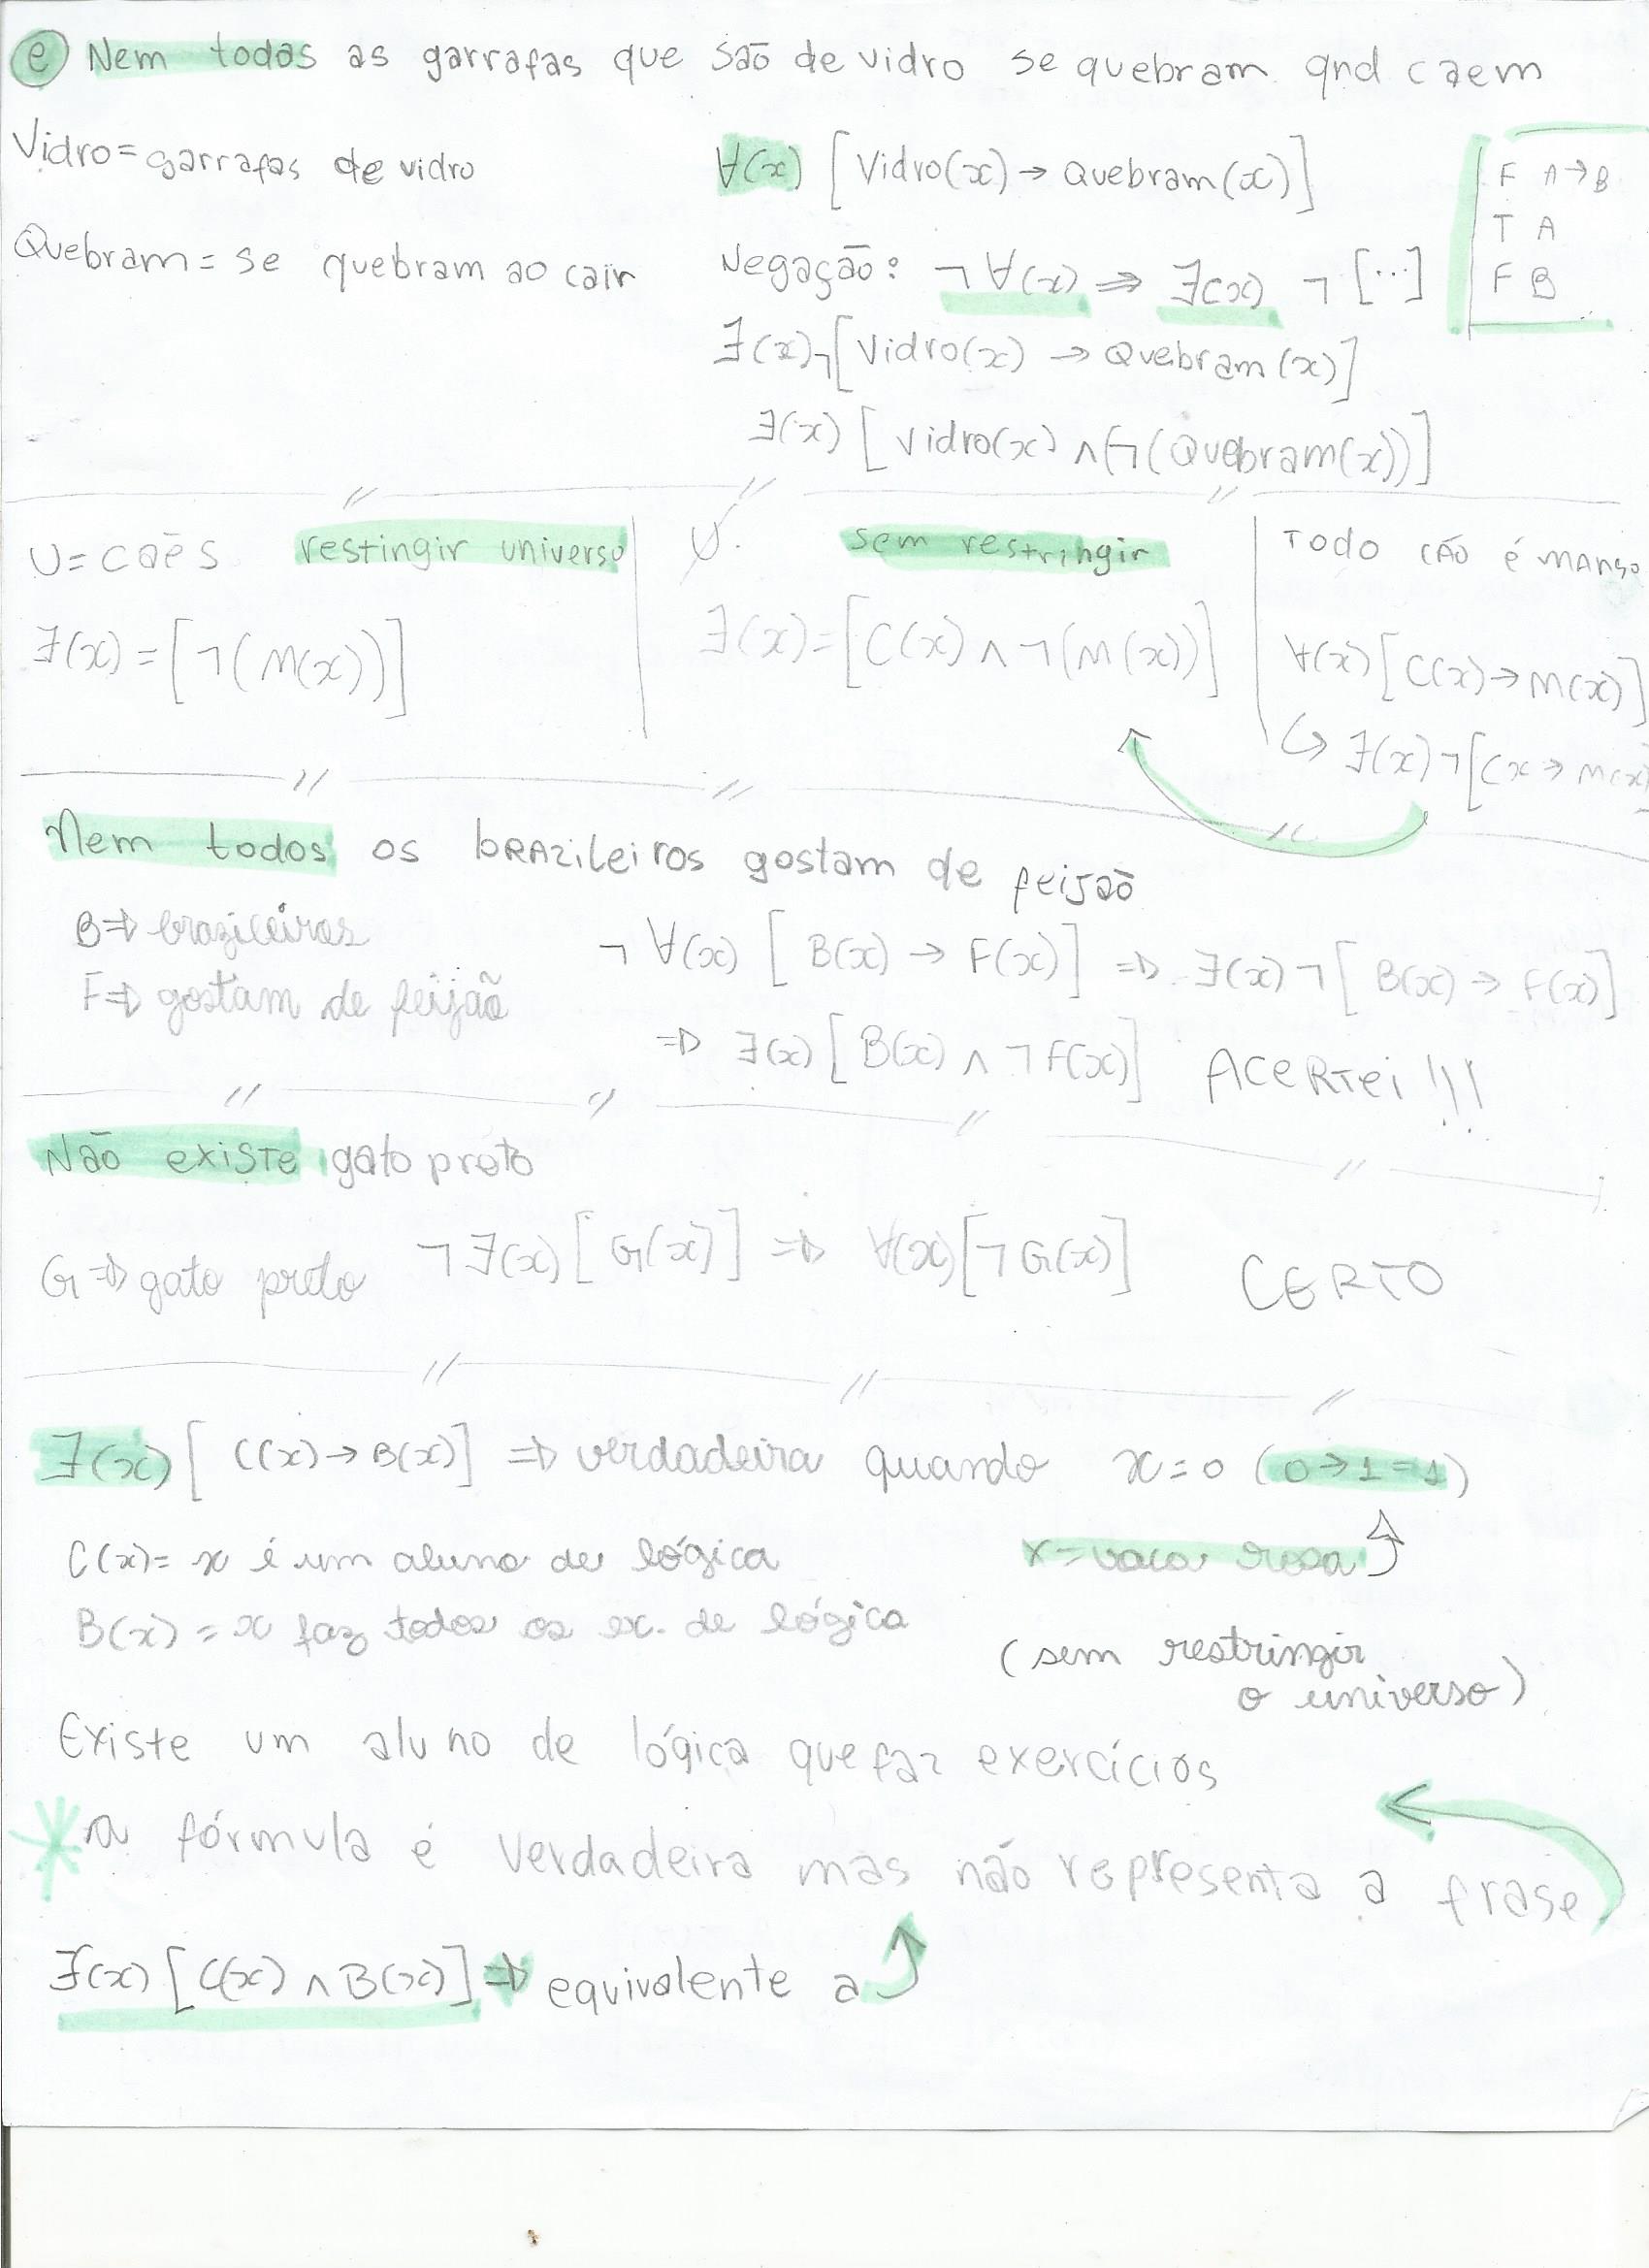 e Nem todas as garrafas que são de vidro se quebram qnd caem
Vidro = garrafas de vidro
Quebram = se quebram ao cair
∀(x) [Vidro(x) → Quebram(x)]
Negação: ¬∀(x) ⇒ ∃(x) ¬[...]
∃(x)¬[Vidro(x) → Quebram(x)]
∃(x) [Vidro(x) ∧(¬(Quebram(x))]
F A→B
T A
F B
U = cães restingir universo
∃(x) = [¬(M(x))]
U. sem restringir
∃(x) = [C(x) ∧ ¬(M(x))]
TODO CÃO é MANSO
∀(x) [C(x) → M(x)]
↪ ∃(x) ¬[Cx → M(x)
Nem todos os brazileiros gostam de feijão
B ⇒ brazileiros
F ⇒ gostam de feijão
¬∀(x) [B(x) → F(x)] ⇒ ∃(x) ¬[B(x) → F(x)]
⇒ ∃(x) [B(x) ∧ ¬F(x)] ACERTEI!!!
Não existe gato preto
G ⇒ gato preto ¬∃(x) [G(x)] ⇒ ∀(x) [¬G(x)] CERTO
∃(x) [C(x) → B(x)] ⇒ verdadeira quando x = 0 (0 → 1 = 1)
C(x) = x é um aluno de lógica
x = vaca rosa
B(x) = x faz todos os ex. de lógica
(sem restringir
o universo)
Existe um aluno de lógica que faz exercícios
* a fórmula é verdadeira mas não representa a frase
∃(x) [C(x) ∧ B(x)] ⇒ equivalente a